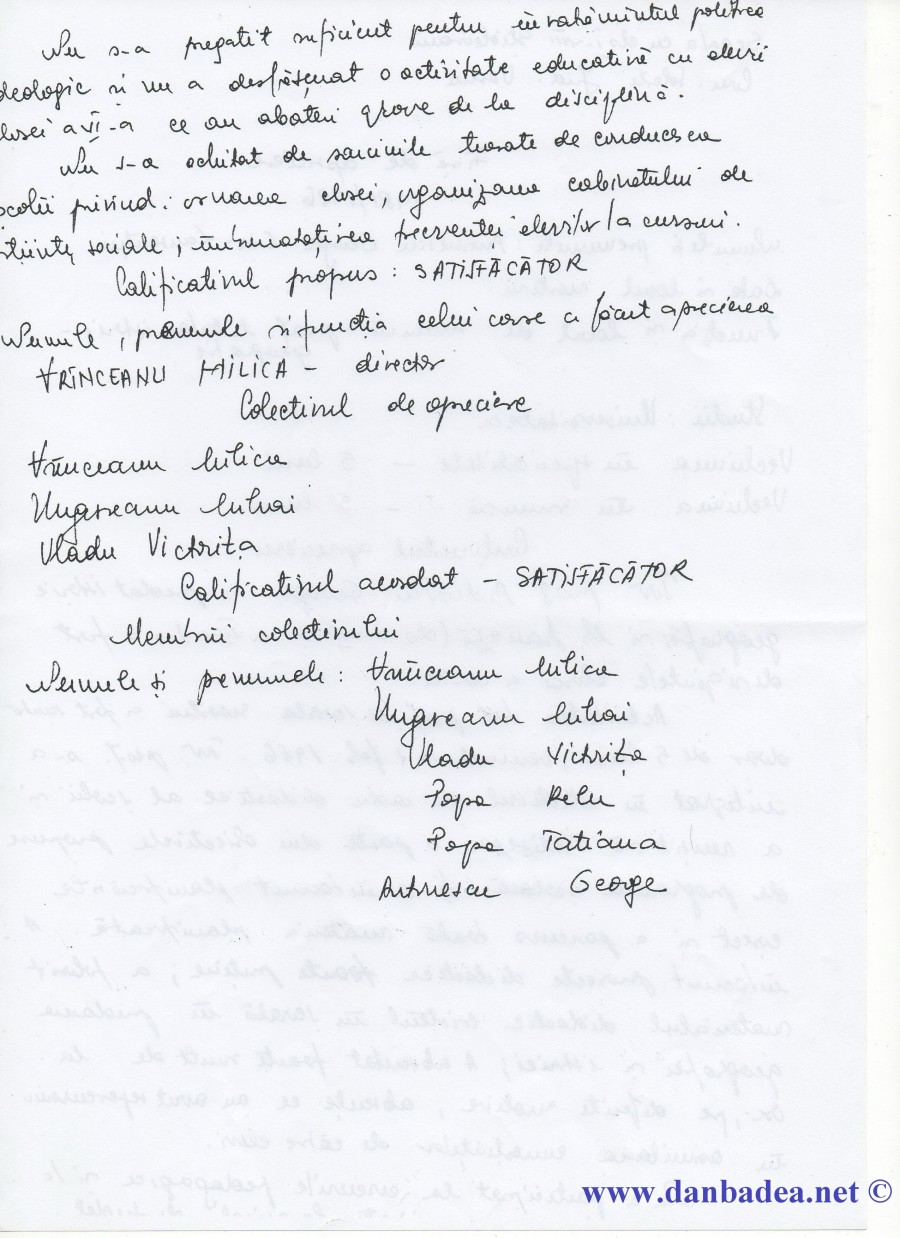 Nu s-a pregatit suficient pentru învatămîntul politico
deologic si nu a desfăsurat o activitate educativă cu elevii
lasei a VI-a ce au abateri grave de la disciplină.
Nu s-a achitat de sarcinile trasate de conducerea
scolii privind: ornarea clasei organizarea cabinetului de
stiinte sociale, îmbunatatirea frecventei elevilor la cursuri.
Calificativul propus: SATISFĂCĂTOR
Numele, prenumele si functia celui care a făcut aprecierea
VRÎNCEANU MILICA - director
Colectivul de apreciere
Vrînceanu Milica
Ungureanu Mihai
Vladu Victorița
Calificativul acordat - SATISFĂCĂTOR
Membrii colectivului
Numele și prenumele: Vrînceanu Milica
Ungureanu Mihai
Vladu Victorița
Popa Relu
Popa Tatiana
Antonescu George
www.danbadea.net ©